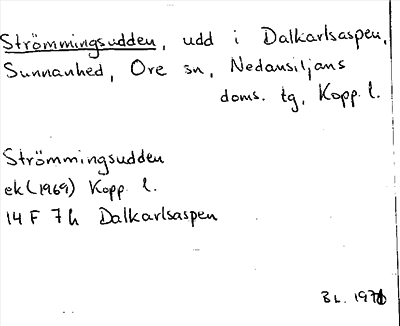 Strömmingsudden, udd i Dalkarlsaspen,
Sunnanhed, Ore sn, Nedansiljans
doms. tg, Kopp. l.
Strömmingsudden
ek (1969) Kopp. l.
14 F 7 h Dalkarlsaspen
B L. 1971